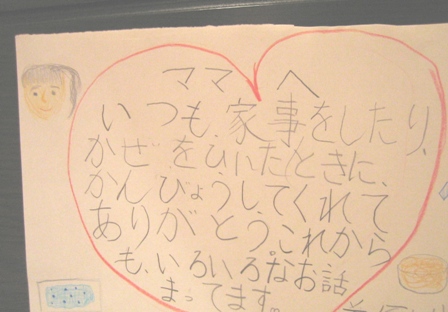 ママへ
いつも、家事をしたり、
かぜをひいたときに、
かんびょうしてくれて
ありがとう。これから
も、いろいろなお話
まってます。